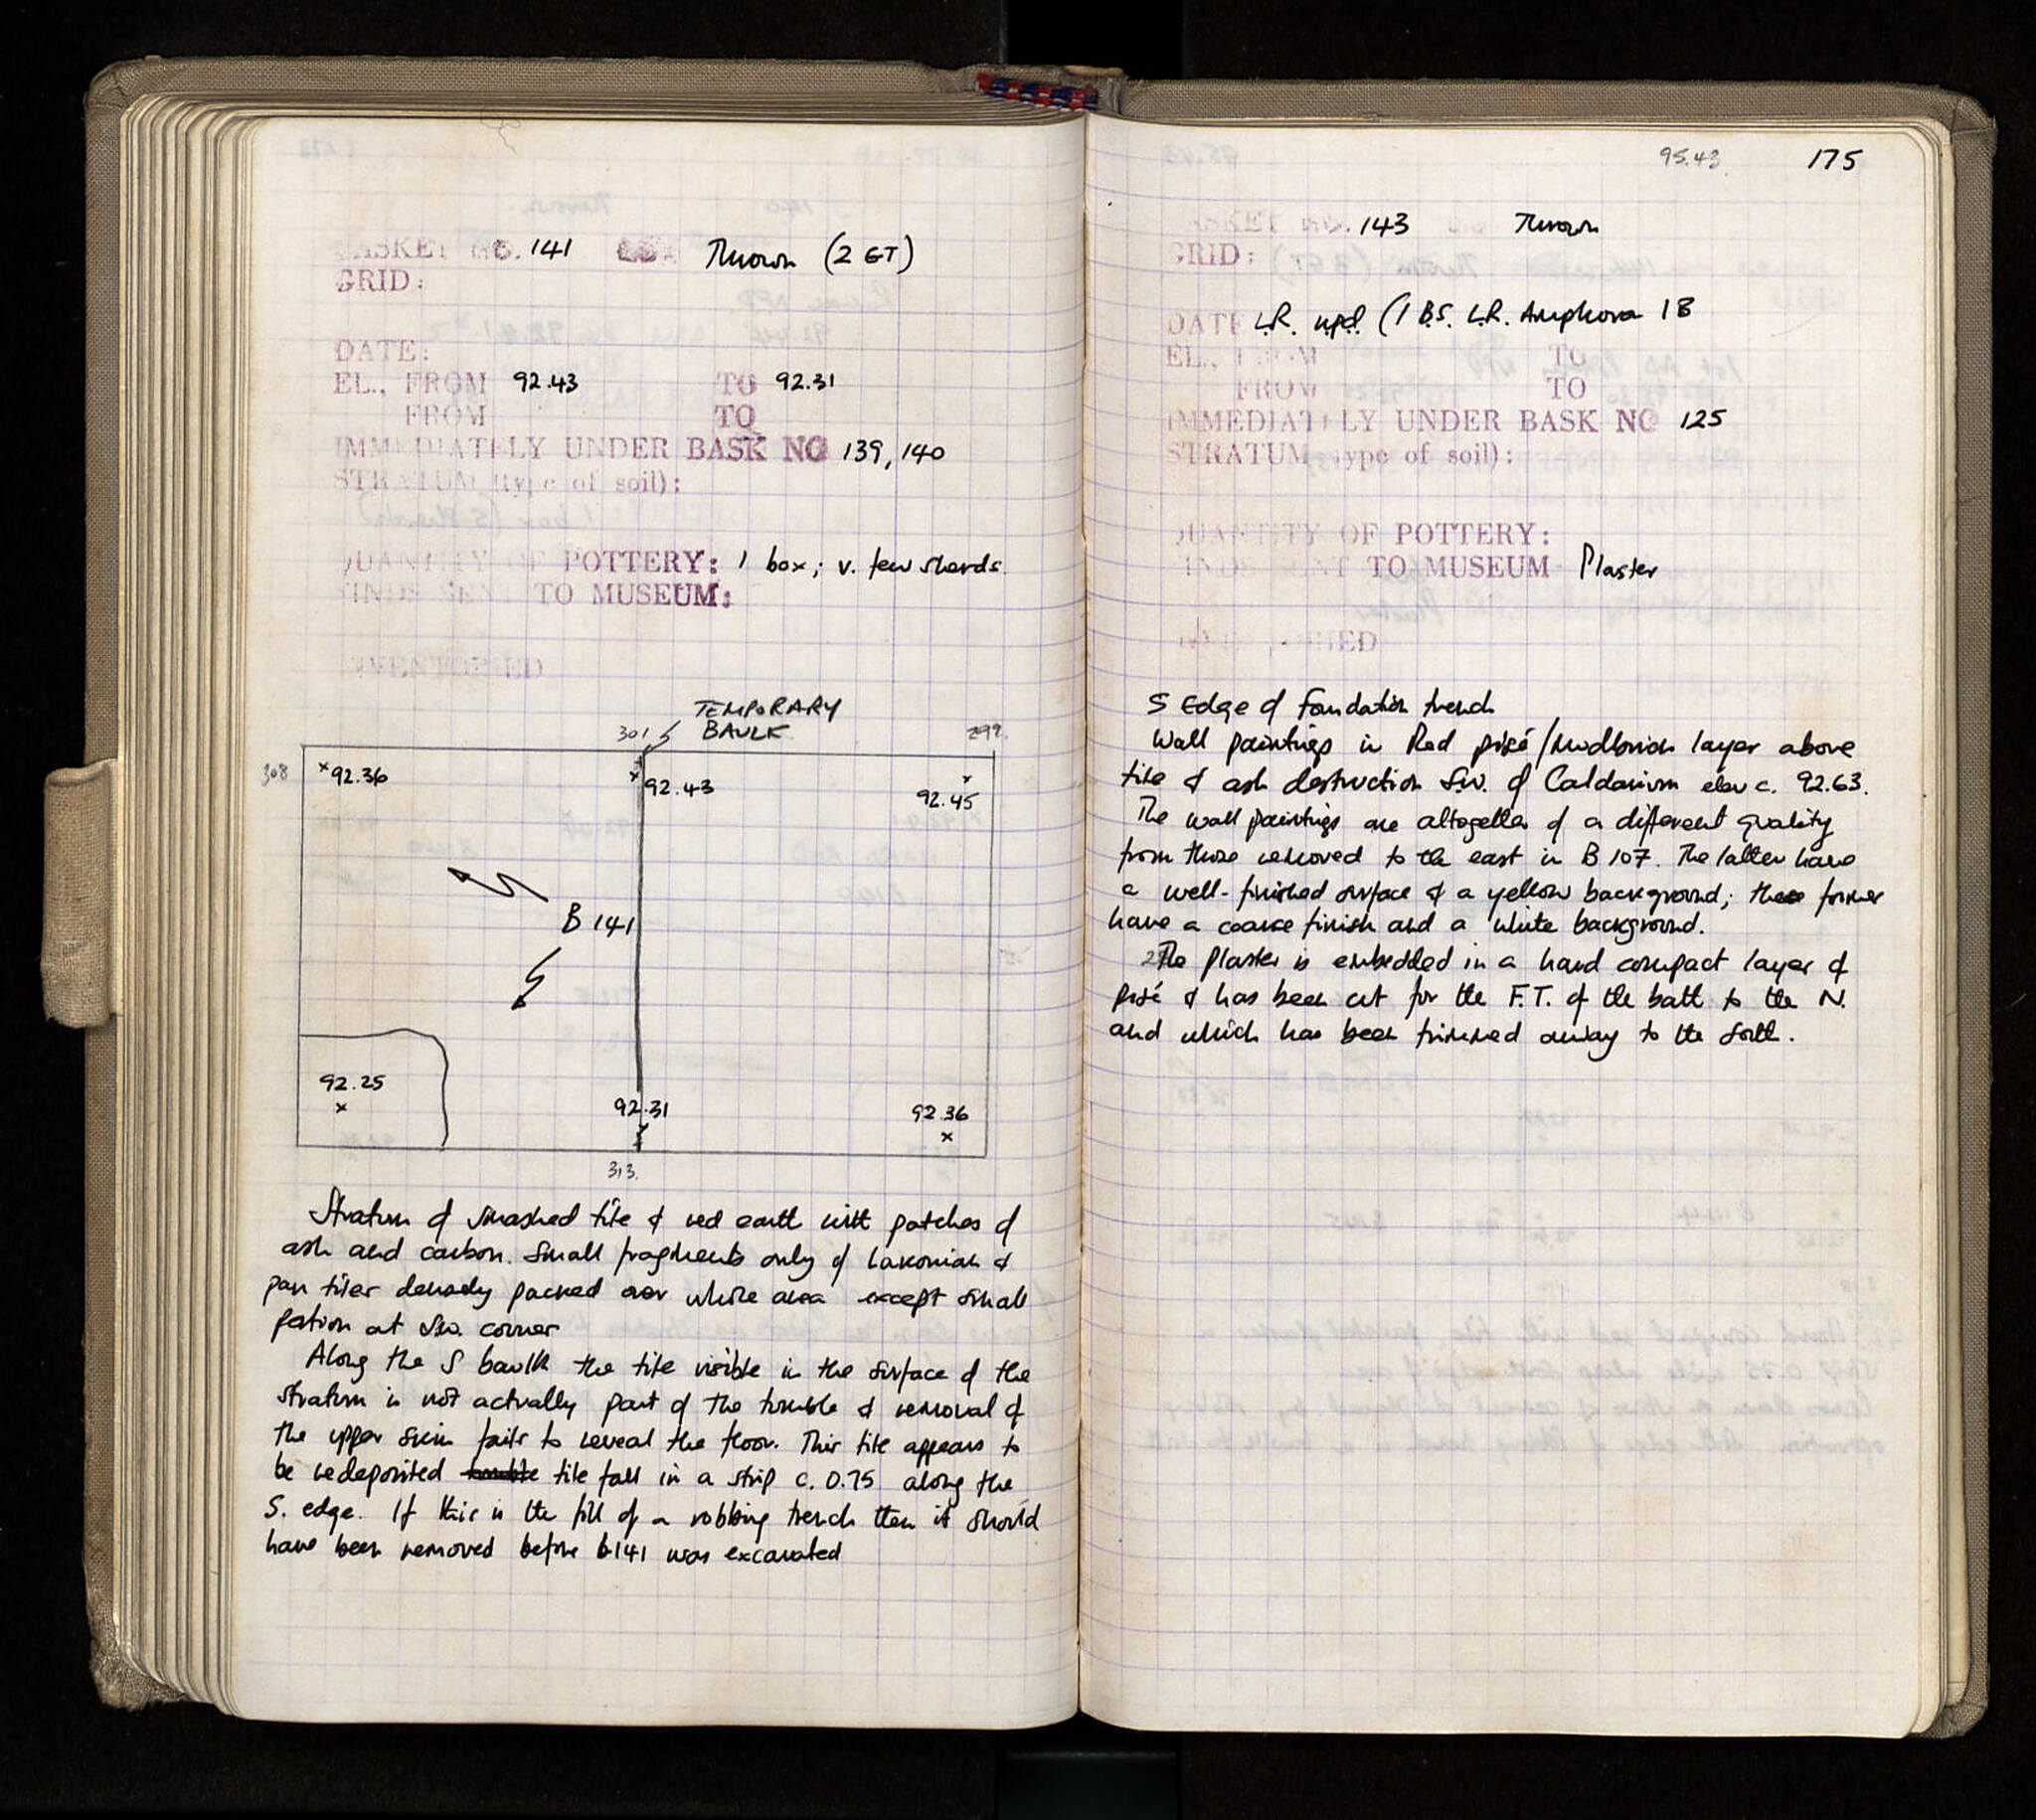 BASKET NO. 141 Thrown (2 GT)
GRID:
DATE:
EL., FROM 92.43 TO 92.31
FROM TO
IMMEDIATELY UNDER BASK NO 139, 140
STRATUM (type of soil):
QUANTITY OF POTTERY: 1 box; v. few sherds
FINDS SENT TO MUSEUM:
INVENTORIED
TEMPORARY
BAULK
301
299.
308
92.36
92.43
92.45
B 141
92.25
92.31
92.36
313.
Stratum of smashed tile & red earth with patches of
ash and carbon. Small fragments only of Lakonian &
pan tiles densely packed over whole area except small
portion at S.W. corner
Along the S baulk the tile visible in the surface of the
stratum is not actually part of the tumble & removal of
the upper skin fails to reveal the floor. This tile appears to
be redeposited tumble tile fall in a strip c. 0.75 along the
S. edge. If this is the fill of a robbing trench then it should
have been removed before B141 was excavated
95.43 175
BASKET NO. 143 Thrown
GRID:
DATE L.R. npd. (1 B.S. L.R. Amphora 1B
EL., FROM TO
FROM TO
IMMEDIATELY UNDER BASK NO 125
STRATUM (type of soil):
QUANTITY OF POTTERY:
FINDS SENT TO MUSEUM Plaster
INVENTORIED
S Edge of foundation trench
Wall paintings in Red pisé/mudbrick layer above
tile & ash destruction S.W. of Caldarium elev c. 92.63.
The wall paintings are altogether of a different quality
from those removed to the east in B 107. The latter have
a well-finished surface & a yellow background; these former
have a coarse finish and a white background.
The plaster is embedded in a hard compact layer of
pisé & has been cut for the F.T. of the bath to the N.
and which has been trimmed away to the south.